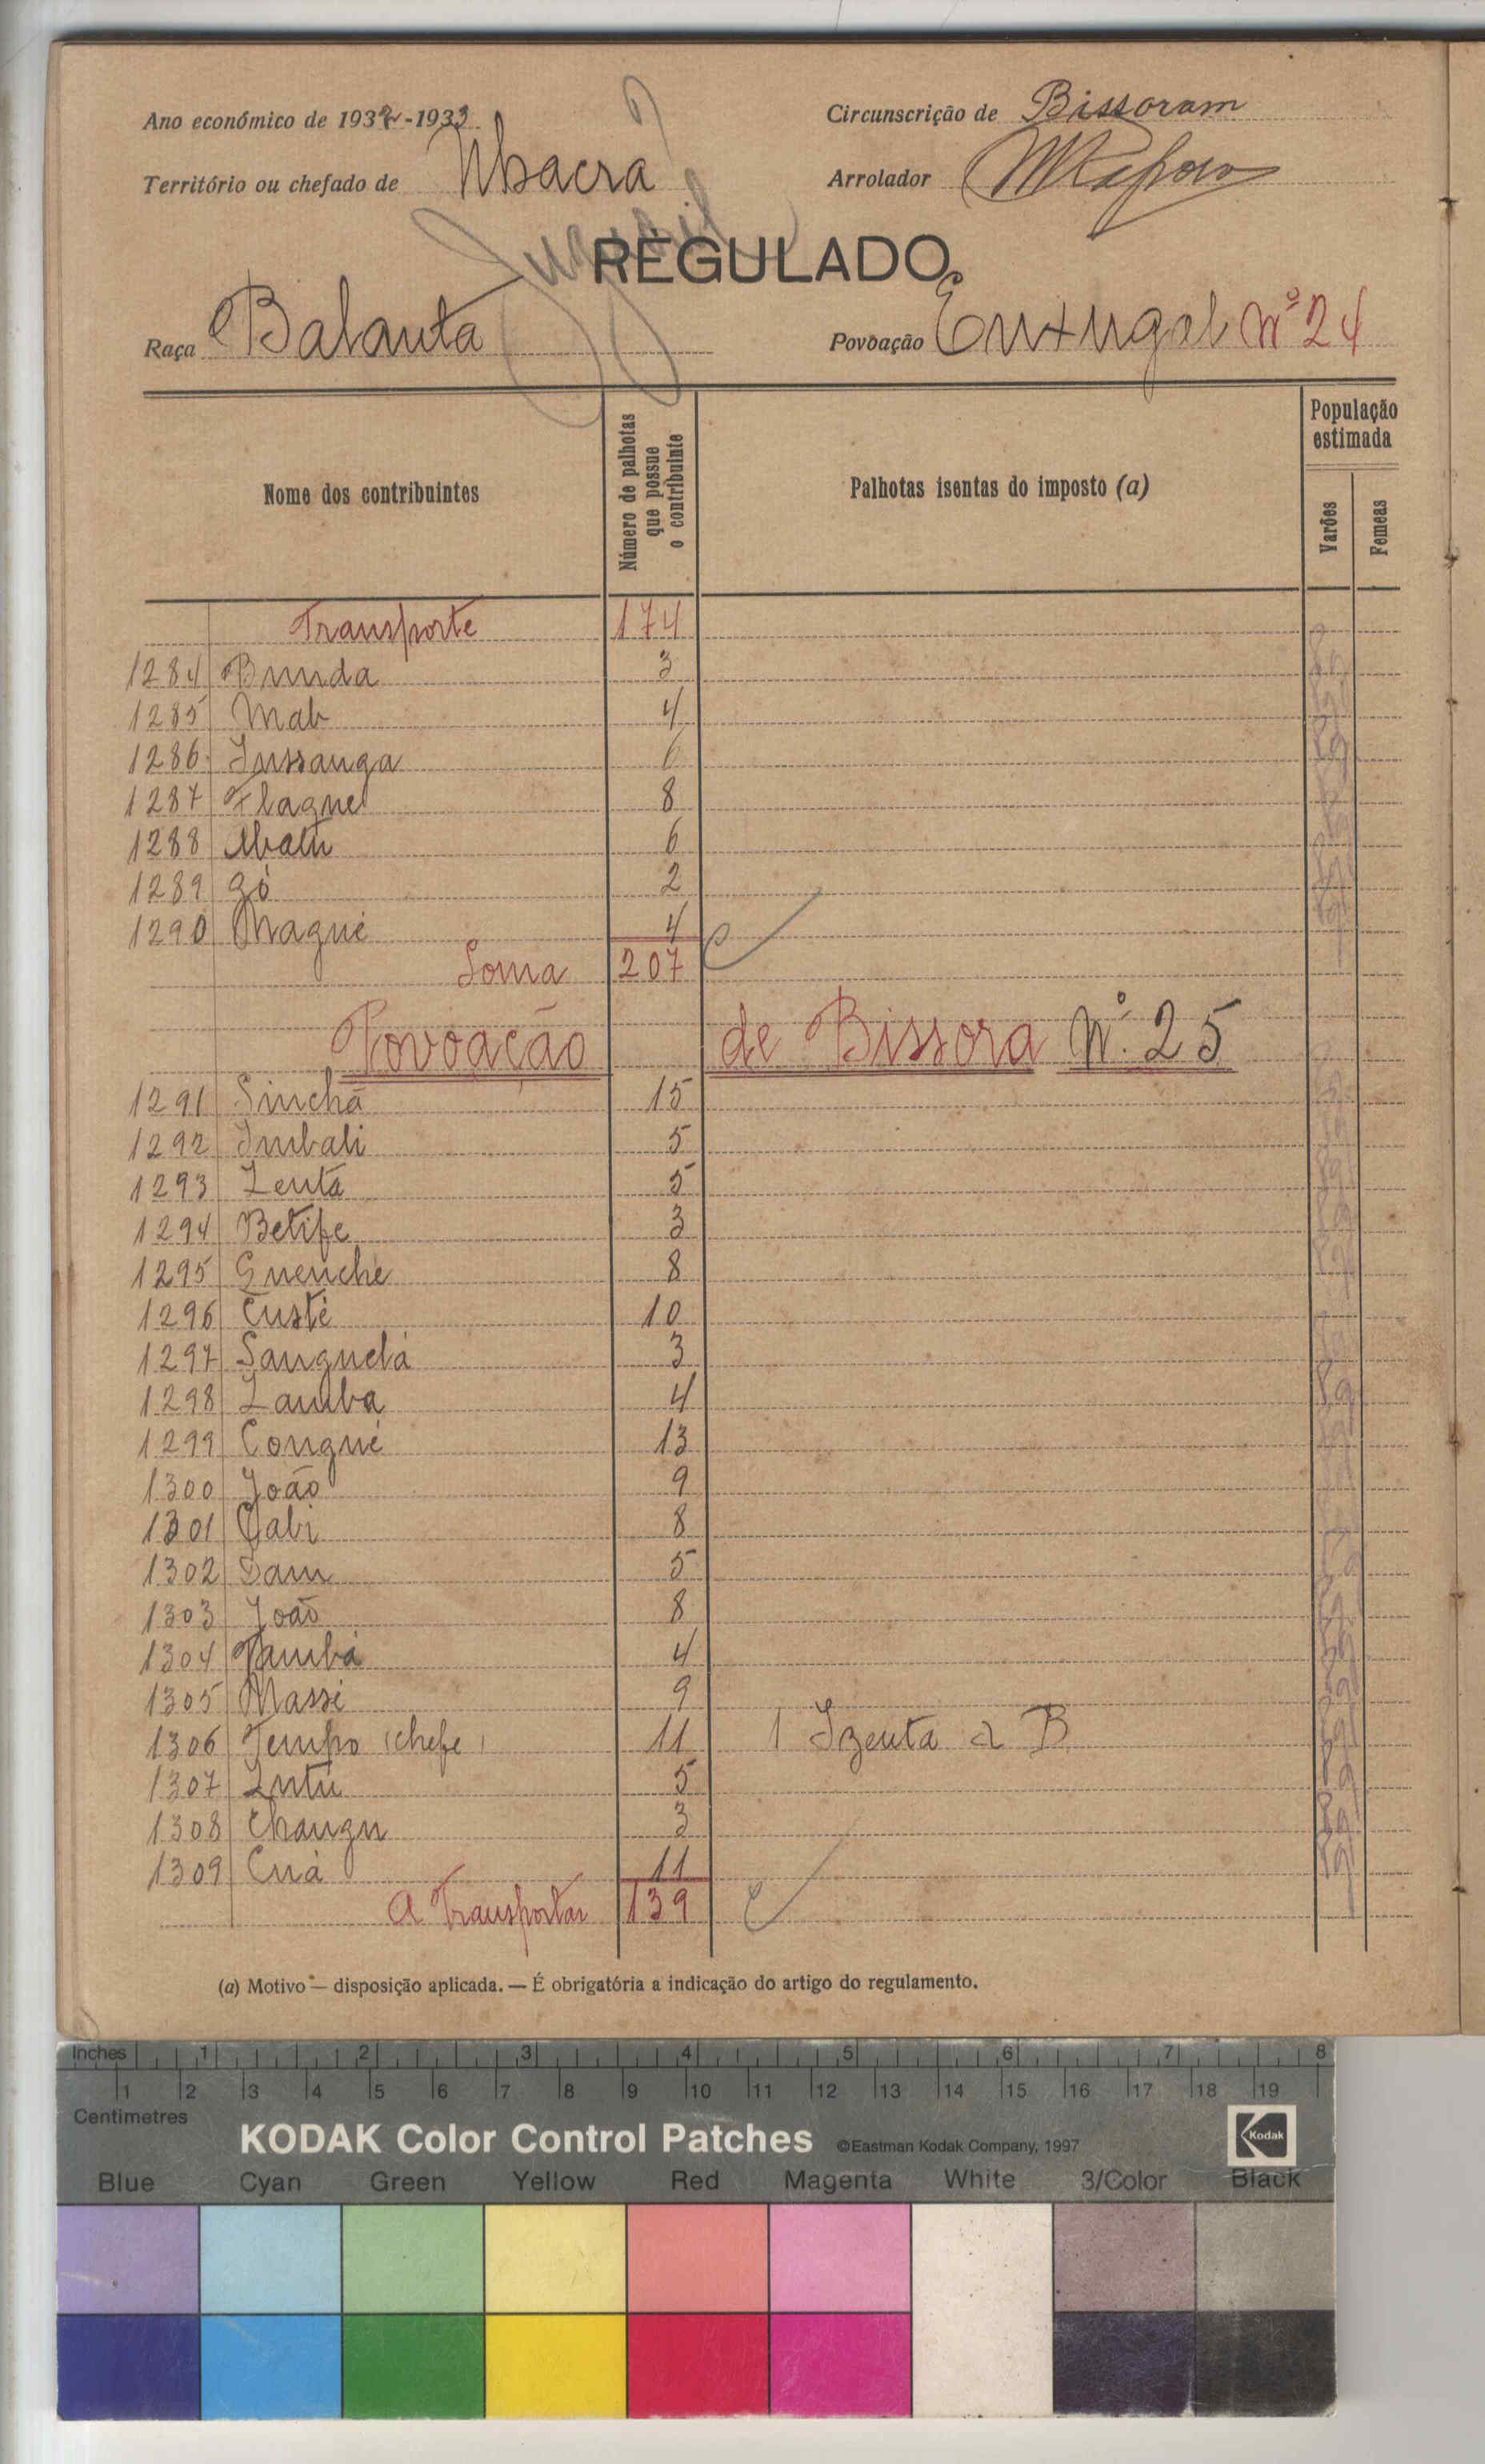 Ano económico de 1932-1933
Circunscrição de Bissoram
Território ou chefado de Nhacra
Arrolador
REGULADO
Raça Balanta
Povoação Enxugal Nº 24
Nome dos contribuintes
Número de palhotas que possue o contribuinte
Palhotas isentas do imposto (a)
População estimada
Varões
Femeas
Transporte 174
1284 Bunda 3
1285 Mab 4
1286 Inssanga 6
1287 Flagne 8
1288 Abatu 6
1289 Gó 2
1290 Nagué 4
Soma 207
Povoação de Bissora Nº 25
1291 Sinchã 15
1292 Imbali 5
1293 Zenta 5
1294 Betife 3
1295 Quenche 8
1296 Custé 10
1297 Sanguelá 3
1298 Lamba 4
1299 Congué 13
1300 João 9
1301 Gabi 8
1302 Dam 5
1303 João 8
1304 Tambá 4
1305 Massi 9
1306 Tempo (chefe) 11 1 Izenta a B
1307 Intú 5
1308 Changu 3
1309 Cuá 11
A Transportar 139
(a) Motivo — disposição aplicada. — É obrigatória a indicação do artigo do regulamento.
Inches 1 2 3 4 5 6 7 8
1 2 3 4 5 6 7 8 9 10 11 12 13 14 15 16 17 18 19
Centimetres
KODAK Color Control Patches ©Eastman Kodak Company, 1997 Kodak
Blue Cyan Green Yellow Red Magenta White 3/Color Black